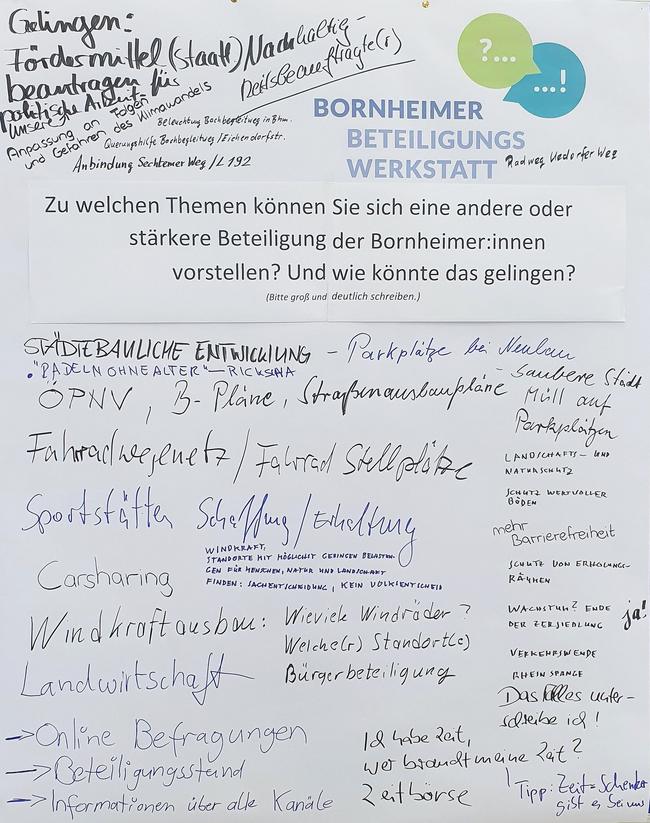 Gelingen:
Fördermittel (Staatl) Nachhaltig-
keitsbeauftragte(r)
beantragen für
politische Arbeit
Unsere
Anpassung an Folgen
und Gefahren des Klimawandels
Beleuchtung Bachbegleitweg in Bhm.
Querungshilfe Bachbegleitweg/Eichendorfstr.
Anbindung Sechtemer Weg/L192
?...
...!
BORNHEIMER
BETEILIGUNGS
WERKSTATT
Radweg Uedorfer Weg
Zu welchen Themen können Sie sich eine andere oder
stärkere Beteiligung der Bornheimer:innen
vorstellen? Und wie könnte das gelingen?
(Bitte groß und deutlich schreiben.)
STÄDTEBAULICHE ENTWICKLUNG - Parkplätze bei Neubau
• "RADELN OHNE ALTER" — RICKSHA
ÖPNV, B-Pläne, Straßenausbaupläne
- saubere Stadt
Müll auf
Parkplätzen
Fahrradwegenetz / Fahrrad Stellplätze
LANDSCHAFTS- UND
NATURSCHUTZ
SCHUTZ WERTVOLLER
BÖDEN
Sportstätten Schaffung / Erhaltung
mehr
Barrierefreiheit
WINDKRAFT,
STANDORTE MIT MÖGLICHST GERINGEN BELASTUN-
GEN FÜR MENSCHEN, NATUR UND LANDSCHAFT
FINDEN: SACHENTSCHEIDUNG, KEIN VOLKSENTSCHEID
Carsharing
SCHUTZ VON ERHOLUNGS-
RÄUMEN
Windkraftausbau: Wieviele Windräder?
Welche(r) Standort(e)
Bürgerbeteiligung
WACHSTUM? ENDE
DER ZERSIEDLUNG
ja!
VERKEHRSWENDE
RHEINSPANGE
Landwirtschaft
Das alles unter-
schreibe ich!
→ Online Befragungen
→ Beteiligungsstand
→ Informationen über alle Kanäle
Ich habe Zeit,
wer braucht meine Zeit?
Zeitbörse
! Tipp: Zeit=Schenker
gist es bei uns